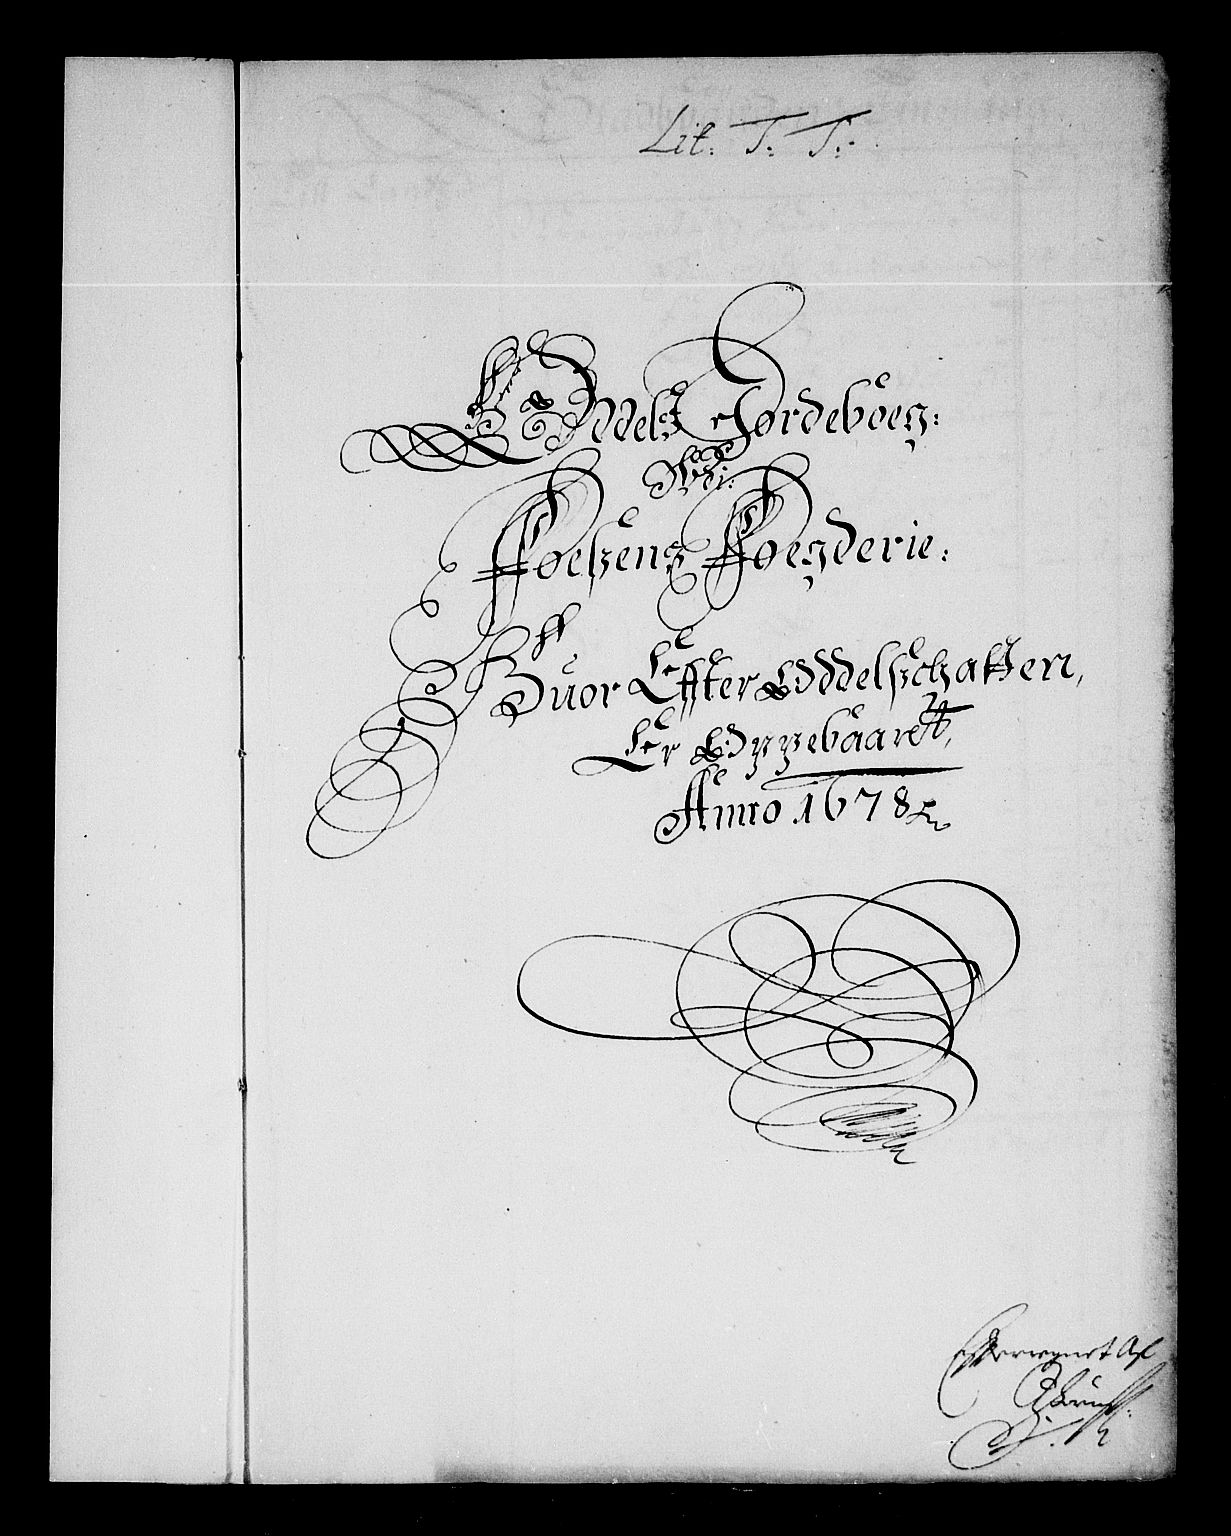 Lit: T: T:
Oddelß Jordeboeg:
Udj:
Foeßens Foegderie:
Huor Effter Oddelßchatten,
Er Oppebaarett,
Anno 1678
Effterregnet Af